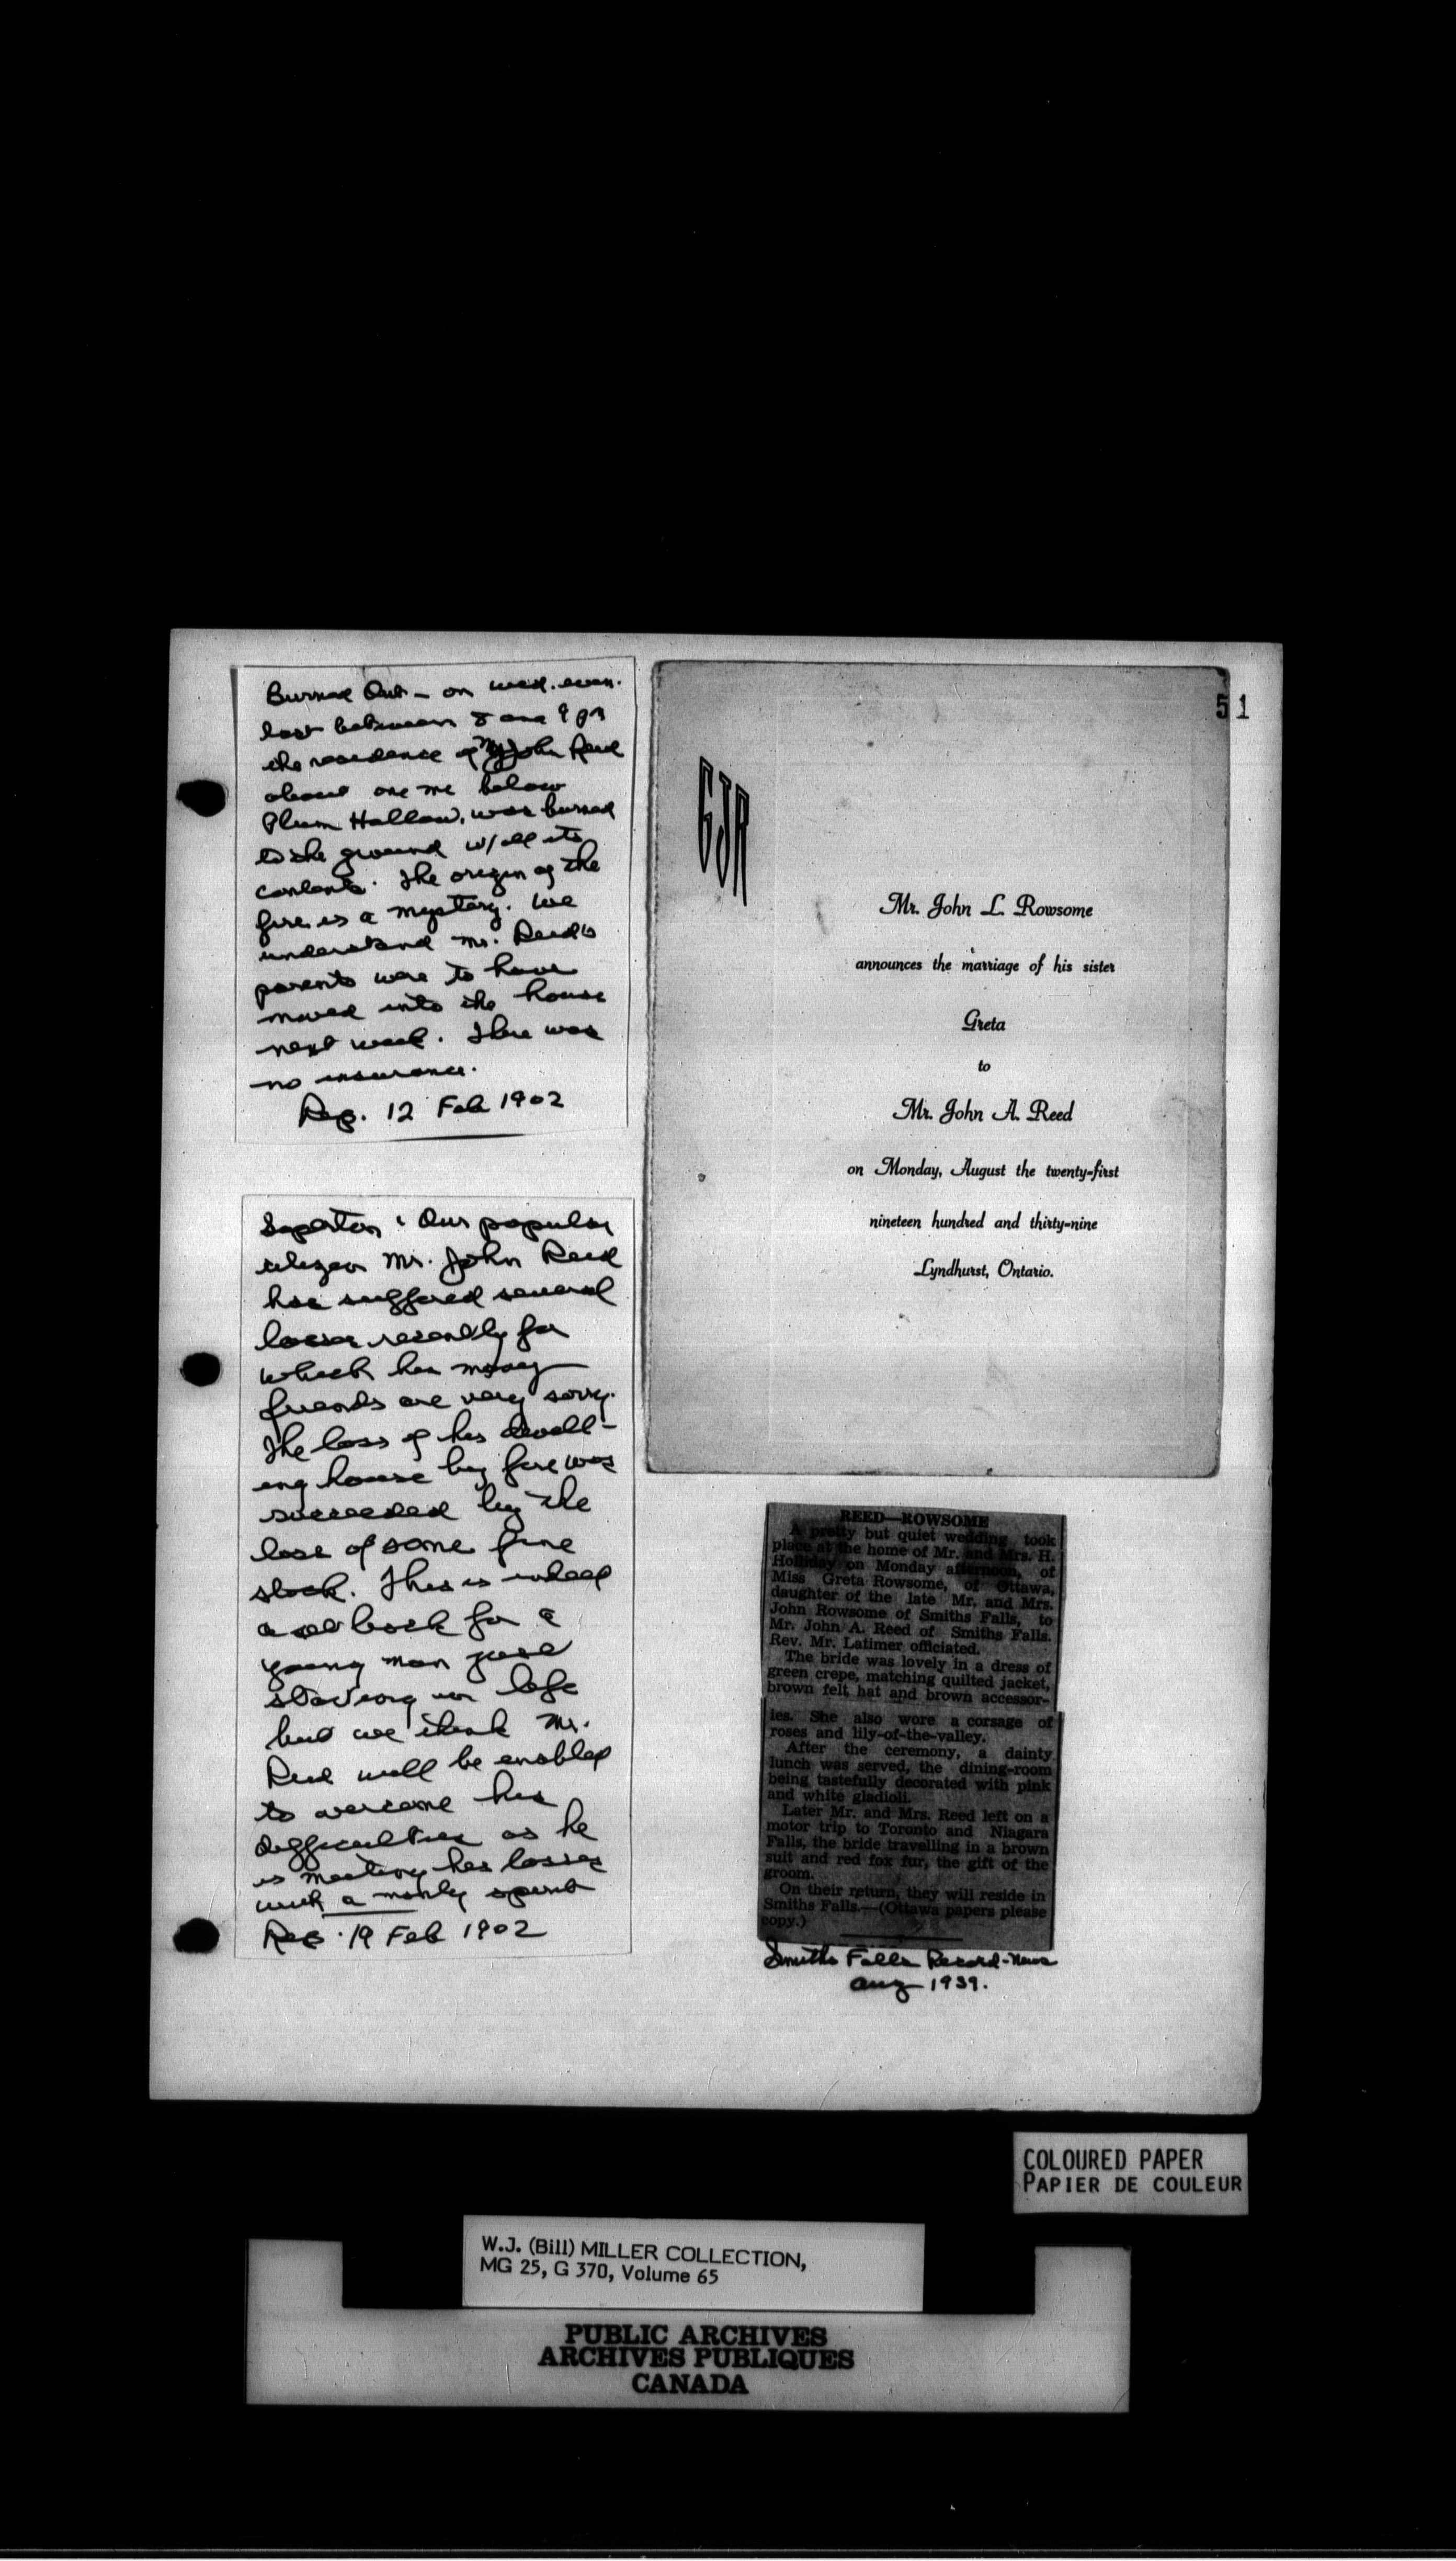 Burned Out - on wed. even.
last between 8 and 9 pm
the residence of Mr John Reed
about one mi below
Plum Hollow, was burned
to the ground w/all its
contents. The origin of the
fire is a mystery. We
understand Mr. Reed's
parents were to have
moved into the house
next week. There was
no insurance.
Rep. 12 Feb 1902
Soperton: Our popular
citizen Mr. John Reed
has suffered several
losses recently for
which his many
friends are very sorry.
The loss of his dwell-
ing house by fire was
succeeded by the
loss of some fine
stock. This is indeed
a set back for a
young man just
starting in life
but we think Mr.
Reed will be enabled
to overcome his
difficulties as he
is meeting his losses
with a manly spirit
Rep. 19 Feb 1902
51
GJR
Mr. John L. Rowsome
announces the marriage of his sister
Greta
to
Mr. John A. Reed
on Monday, August the twenty-first
nineteen hundred and thirty-nine
Lyndhurst, Ontario.
REED—ROWSOME
A pretty but quiet wedding took
place at the home of Mr. and Mrs. H.
Holliday on Monday afternoon, of
Miss Greta Rowsome, of Ottawa,
daughter of the late Mr. and Mrs.
John Rowsome of Smiths Falls, to
Mr. John A. Reed of Smiths Falls.
Rev. Mr. Latimer officiated.
The bride was lovely in a dress of
green crepe, matching quilted jacket,
brown felt hat and brown accessor-
ies. She also wore a corsage of
roses and lily-of-the-valley.
After the ceremony, a dainty
lunch was served, the dining-room
being tastefully decorated with pink
and white gladioli.
Later Mr. and Mrs. Reed left on a
motor trip to Toronto and Niagara
Falls, the bride travelling in a brown
suit and red fox fur, the gift of the
groom.
On their return, they will reside in
Smiths Falls.—(Ottawa papers please
copy.)
Smiths Falls Record-News
Aug 1939.
COLOURED PAPER
PAPIER DE COULEUR
W.J. (Bill) MILLER COLLECTION,
MG 25, G 370, Volume 65
PUBLIC ARCHIVES
ARCHIVES PUBLIQUES
CANADA